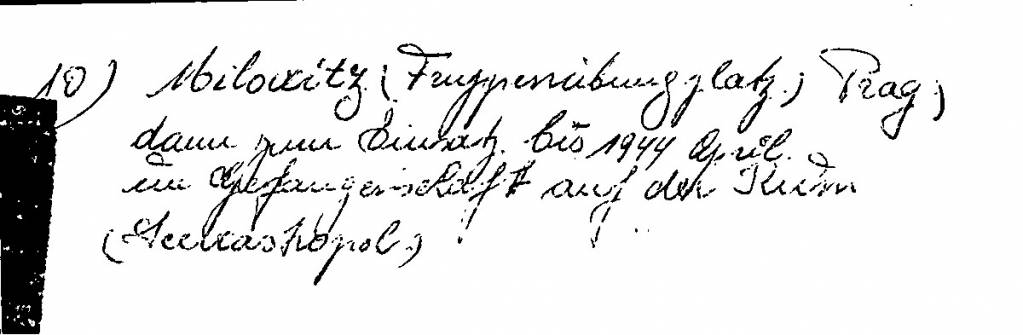 10) Milowitz (Truppenübungsplatz) Prag,
dann zum Einsatz. bis 1944 April.
in Gefangenschaft auf der Krim
(Seewastopol)